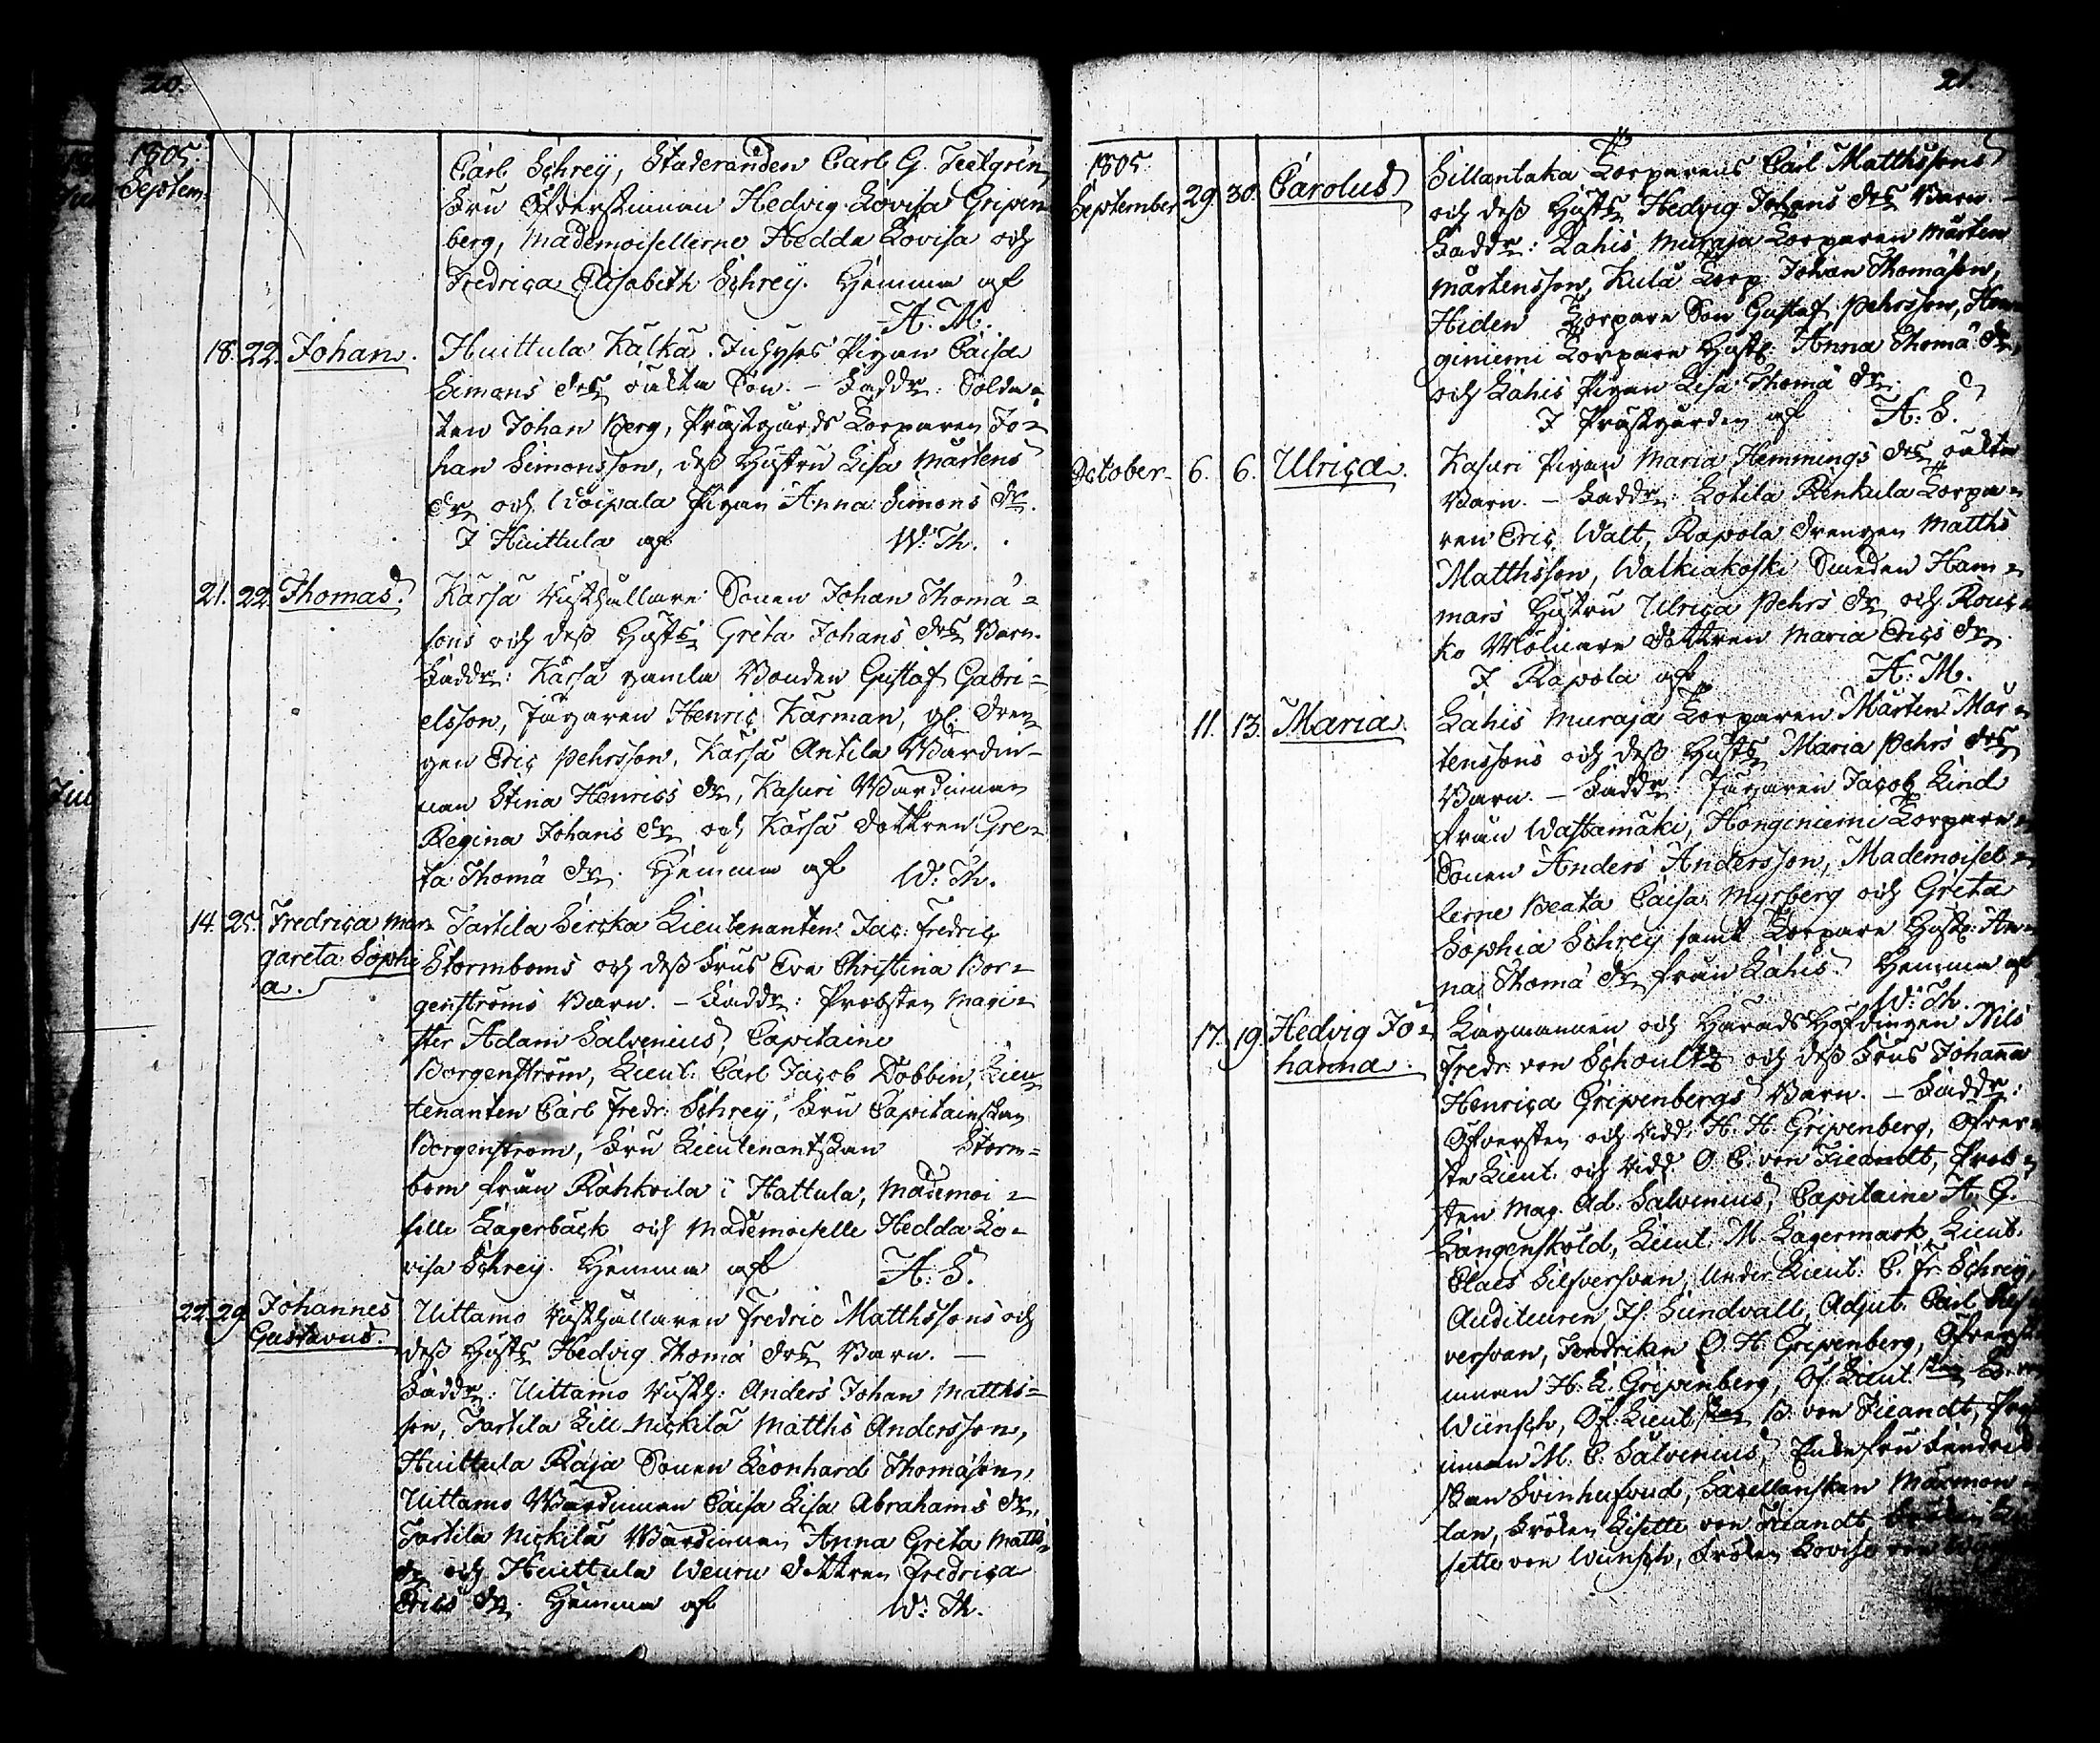 20.
1805.
Septem.
Carl Schreÿ, Studeranden Carl G. Teetgrén,
Fru Öfverstinnan Hedvig Lovisa Gripen-
berg, Mademoisellerne Hedda Lovisa och
Fredrica Elisabeth Schreÿ. Hemma af
A. M.
18. 22. Johan. Huittula Kalka Inhyses Pigan Caisa
Simons drs oäkta Son. – Faddr: Solda=
ten Johan Berg, Prästgårds Torparen Jo=
han Simonsson, dess Hustru Lisa Mårtens
dr och Voipala Pigan Anna Simons dr.
I Huittula af W: Th.
21. 22. Thomas. Kärsä Rusthållare Sonen Johan Thomæ=
sons och dess Hustrs Greta Johans drs Barn.
Faddr: Kärsä gamla Bonden Gustaf Gabri=
elsson, Jägaren Henric Kärman, gl. Dren=
gen Eric Pehrsson, Kärsä Antila Wärdin=
nan Stina Henrics dr, Kasuri Wärdinnan
Regina Johans dr och Kärsä dottren Gre=
ta Thomæ dr. Hemma af W: Th.
14. 25. Fredrica Mar= Tarttila Sircka Lieutenanten Jac: Fredric
gareta Sophi Stormboms och dess Frus Eva Christina Bor=
a. genströms Barn. – Faddr: Probsten Magi=
ster Adam Salvenius, Capitaine
Borgenström, Lieut: Carl Jacob Dobbin, Lieu=
tenanten Carl Fredr: Schreÿ, Fru Capitainskan
Borgenström, Fru Lieutenantskan Storm=
bom från Rahkoila i Hattula, Mademoi=
selle Lagerbäck och Mademoiselle Hedda Lo=
visa Schreÿ. Hemma af A: S.
22. 29. Johannes Uittamo Rusthållaren Fredric Matthssons och
Gustavus. dess Hustrs Hedvig Thomæ drs Barn. –
Faddr: Uittamo Rusth: Anders Johan Matths=
son, Tarttila Lill-Nickilä Matths Andersson,
Huittula Raja Sonen Leonhard Thomæson,
Uittamo Wärdinnan Caisa Lisa Abrahams dr,
Tarttila Nickilä Wärdinnan Anna Greta Matths
dr och Huittula Wenru dottren Fredrica
Erics dr. Hemma af W: Th.
21.
1805.
September 29. 30. Carolus Sillantaka Torparens Carl Matthssons
och dess Hustrs Hedvig Johans drs Barn. –
Faddr: Lahis Muraja Torparen Mårten
Mårtensson, Kulå Torp. Johan Thomæson,
Hiden Torpare Son Gustaf Pehrsson, Hon=
giniemi Torpare Hustr. Anna Thomæ dr,
och Lahis Pigan Lisa Thomæ dr.
I Prästgården af A: S.
October. 6. 6. Ulrica. Kasuri Pigan Maria Hemmings drs oäkta
Barn. – Faddr: Lotila Renkula Torpa=
ren Eric Walt, Rapola drengen Matths
Matthsson, Walkiakoski Smeden Ham=
mars Hustru Ulrica Pehrs dr och Rouc=
ko Mölnare dottren Maria Erics dr.
I Rapola af A: M.
11. 13. Maria. Lahis Muraja Torparen Mårten Mår=
tenssons och dess Hustrs Maria Pehrs drs
Barn. – Faddr: Jägaren Jacob Lind
från Wastamäki, Honginiemi Torpare
Sonen Anders Andersson, Mademoisel=
lerne Beata Caisa Myrberg och Greta
Sophia Schreÿ samt Torpare Hustr. An=
na Thomæ dr från Lahis. Hemma af
W: Th.
17. 19. Hedvig Jo= Lagmannen och Härads Höfdingen Nils
hanna. Fredr: von Schoultz och dess Frus Johanna
Henrica Gripenbergs Barn. – Faddr:
Öfversten och Ridd: H. H. Gripenberg, Öfver=
ste Lieut. och Ridd: O. C. von Fieandt, Prob=
sten Mag. Ad: Salvenius, Capitaine A. G.
Langenskold, Lieut. M. Lagermark, Lieut.
Claes Silfversvan, Under Lieut: C. Fr. Schreÿ,
Auditeuren Is. Sundvall, Adjut. Carl Silf
versvan, Fendriken O. H. Gripenberg, Öfversti
nnan H. L. Gripenberg, Öf: Lieut skan
Wünsch, Öf: Lieut skan B. von Fieandt,
innan M. C. Salvenius, Enkefru
skan Svinhufvud, Sacellanskan Mæxmon=
tan, Fröken Lisette von Fieandt, Fröken Li
sette von Wünsch, Fröken Lovisa von